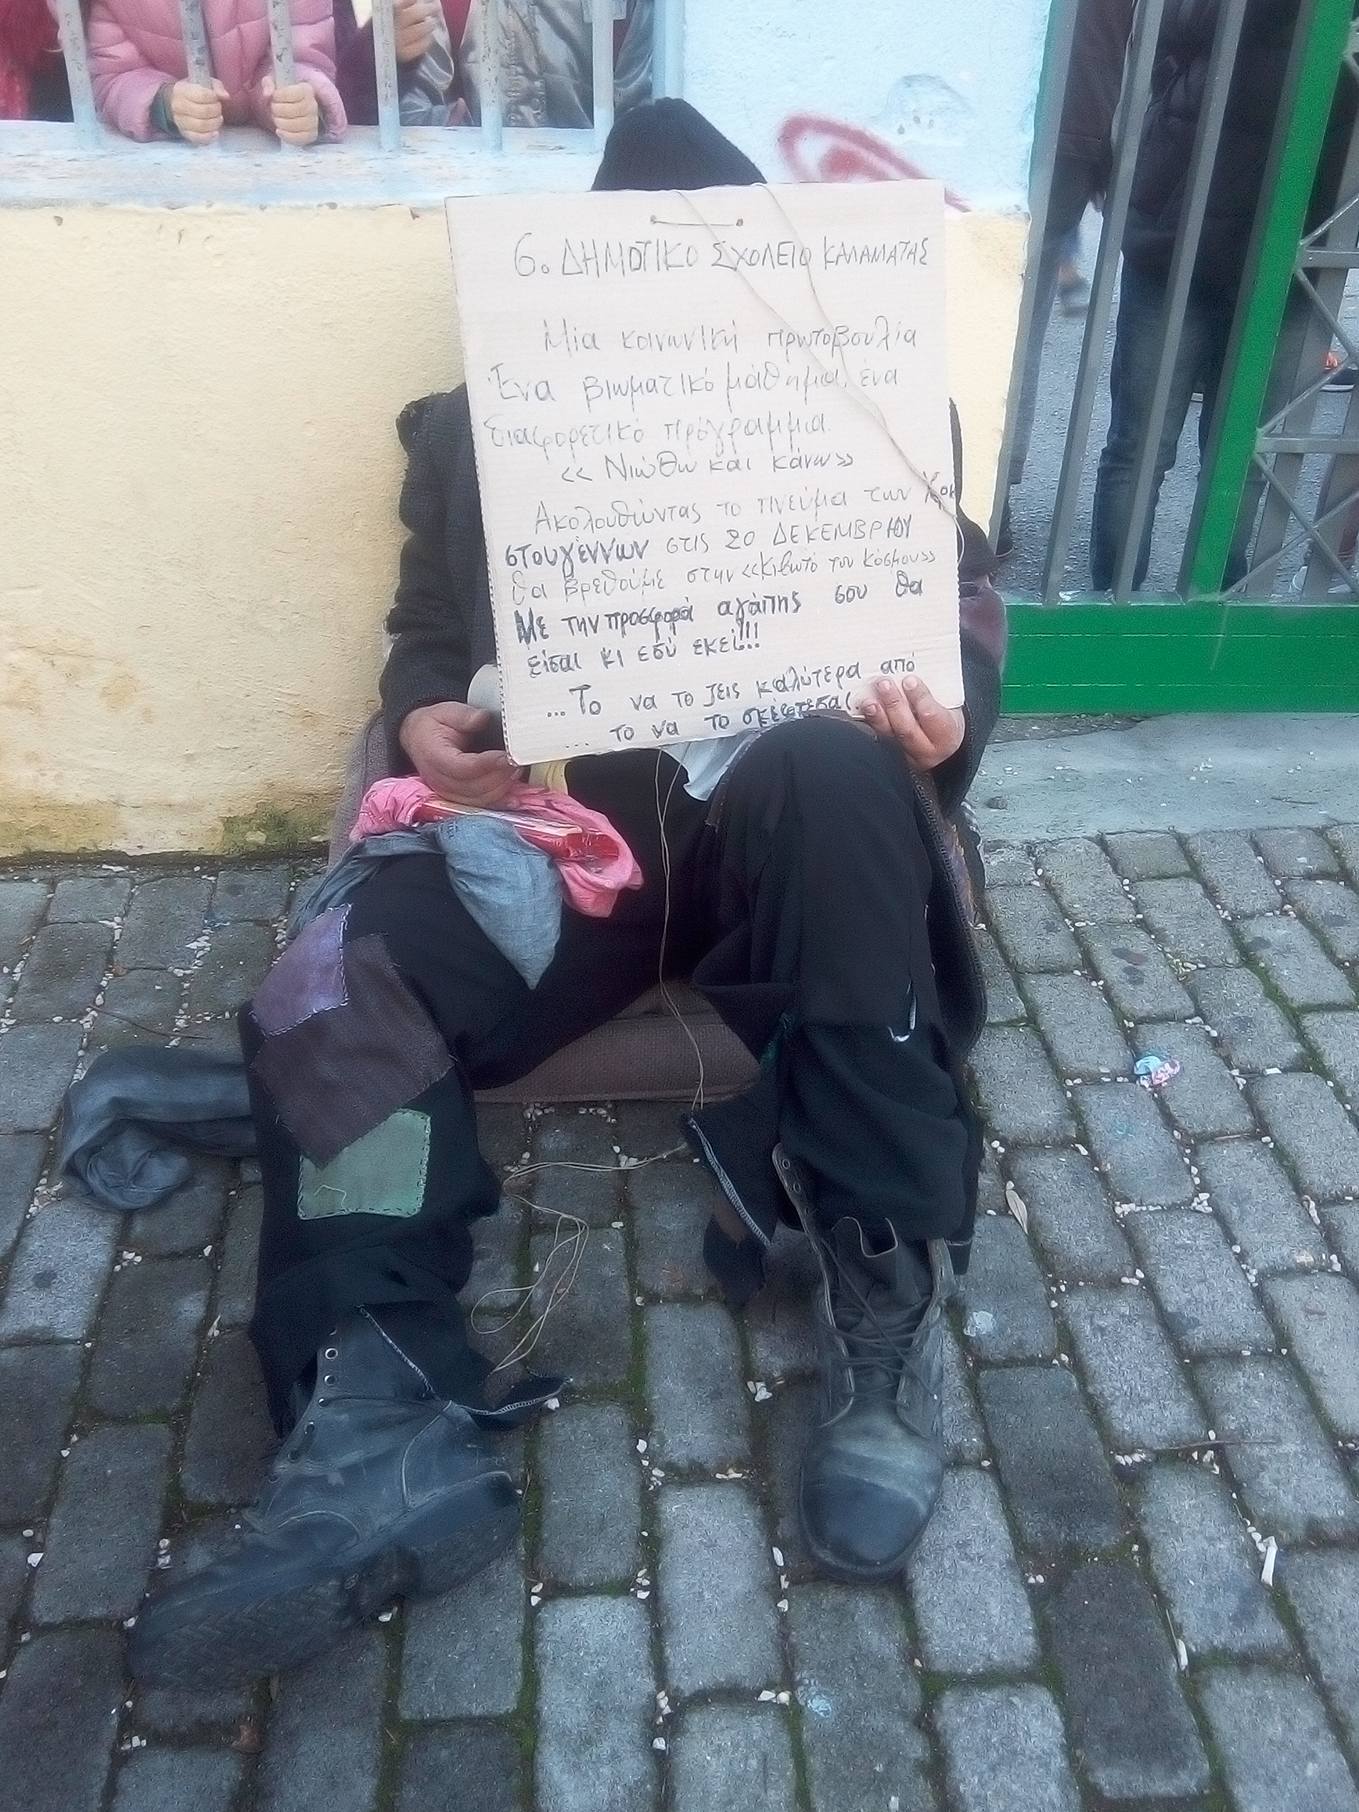 6ο ΔΗΜΟΤΙΚΟ ΣΧΟΛΕΙΟ ΚΑΛΑΜΑΤΑΣ
Μία κοινωνική πρωτοβουλία
Ένα βιωματικό μάθημα, ένα
διαφορετικό πρόγραμμα.
<< Νιώθω και κάνω >>
Ακολουθώντας το πνεύμα των Χρι
στουγέννων στις 20 ΔΕΚΕΜΒΡΙΟΥ
θα βρεθούμε στην <<Κιβωτό του Κόσμου>>
Με την προσφορά αγάπης σου θα
είσαι κι εσύ εκεί!!!
... Το να το ζεις καλύτερα από
... το να το σκέφτεσαι.